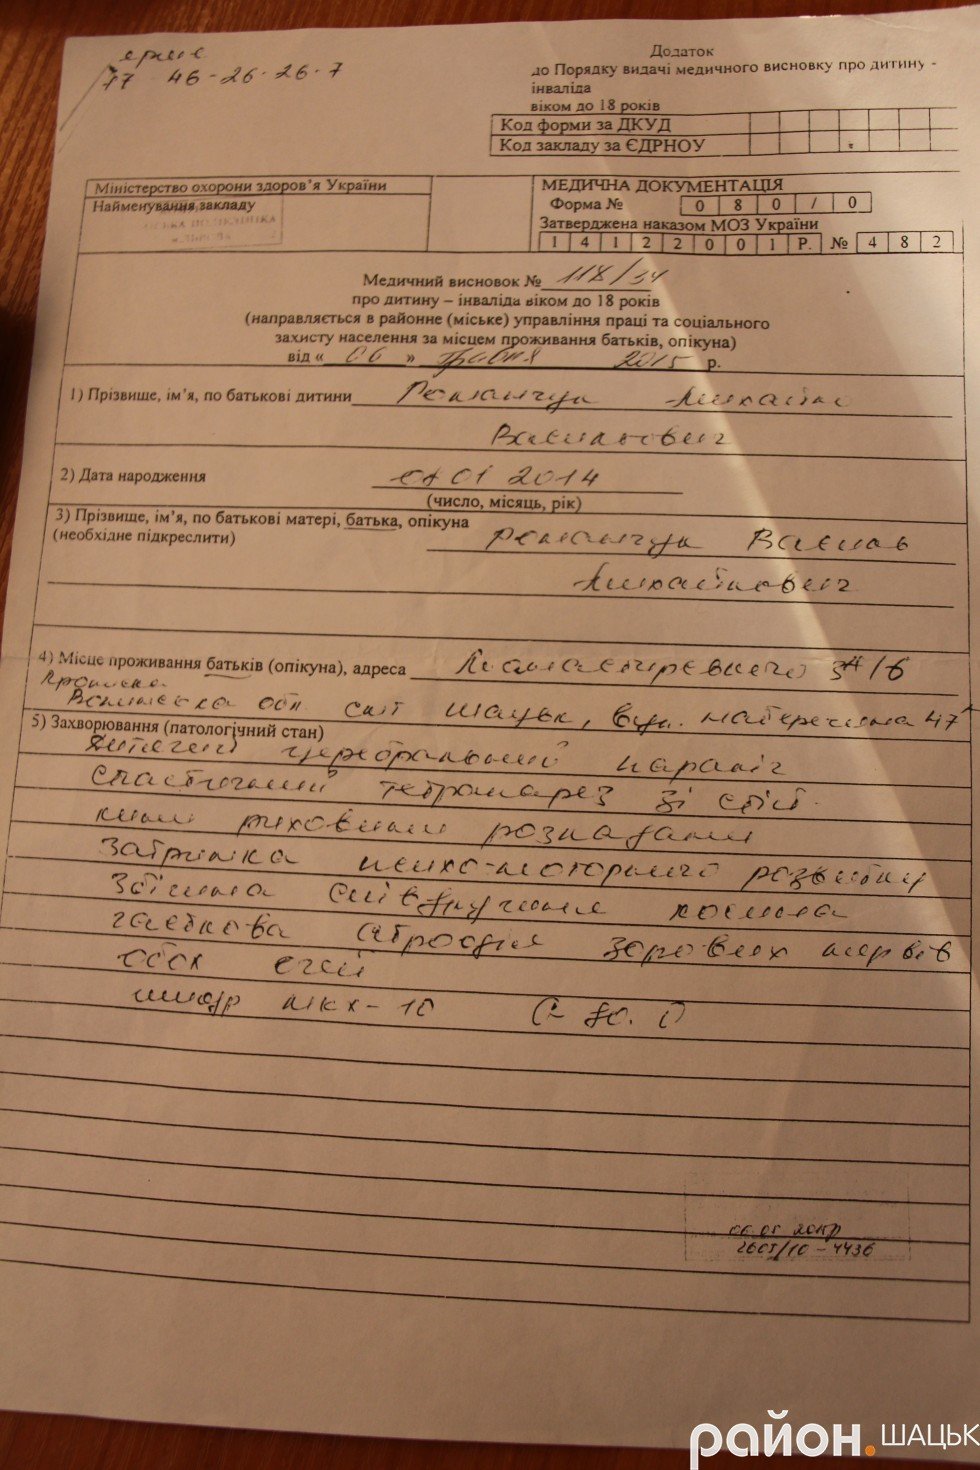 46-26-26-7
Додаток
до Порядку видачі медичного висновку про дитину -
інваліда
віком до 18 років
Код форми за ДКУД
Код закладу за ЄДРНОУ
Міністерство охорони здоров'я України
Найменування закладу
МЕДИЧНА ДОКУМЕНТАЦІЯ
Форма № 0 8 0 / 0
Затверджена наказом МОЗ України
1 4 1 2 2 0 0 1 Р. № 4 8 2
Медичний висновок № 118/34
про дитину – інваліда віком до 18 років
(направляється в районне (міське) управління праці та соціального
захисту населення за місцем проживання батьків, опікуна)
від « 06 » травня 2015 р.
1) Прізвище, ім'я, по батькові дитини Романчук Михайло
Васильович
2) Дата народження 01 2014
(число, місяць, рік)
3) Прізвище, ім'я, по батькові матері, батька, опікуна
(необхідне підкреслити) Романчук Василь
Михайлович
4) Місце проживання батьків (опікуна), адреса
Прописка
Волинська обл смт Шацьк, вул. Набережна 47
5) Захворювання (патологічний стан)
Дитячий церебральний параліч
спастичний тетрапарез зі стій-
кими руховими розладами
Затримка психо-моторного розвитку
Збіжна співдружня косина
часткова атрофія зорових нервів
обох очей
шифр МКХ-10 G-80.0
4436
район.ШАЦЬК